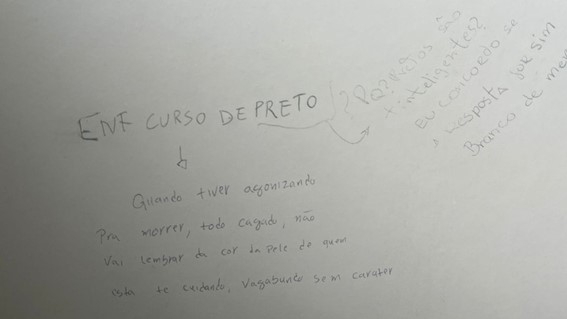 ENF CURSO DE PRETO
Quando tiver agonizando
Pra morrer, todo cagado, não
Vai lembrar da cor da pele de quem
está te cuidando, vagabundo sem carater
Pq? Pretos são
+ inteligentes?
Eu concordo se
a resposta for sim
Branco de mer